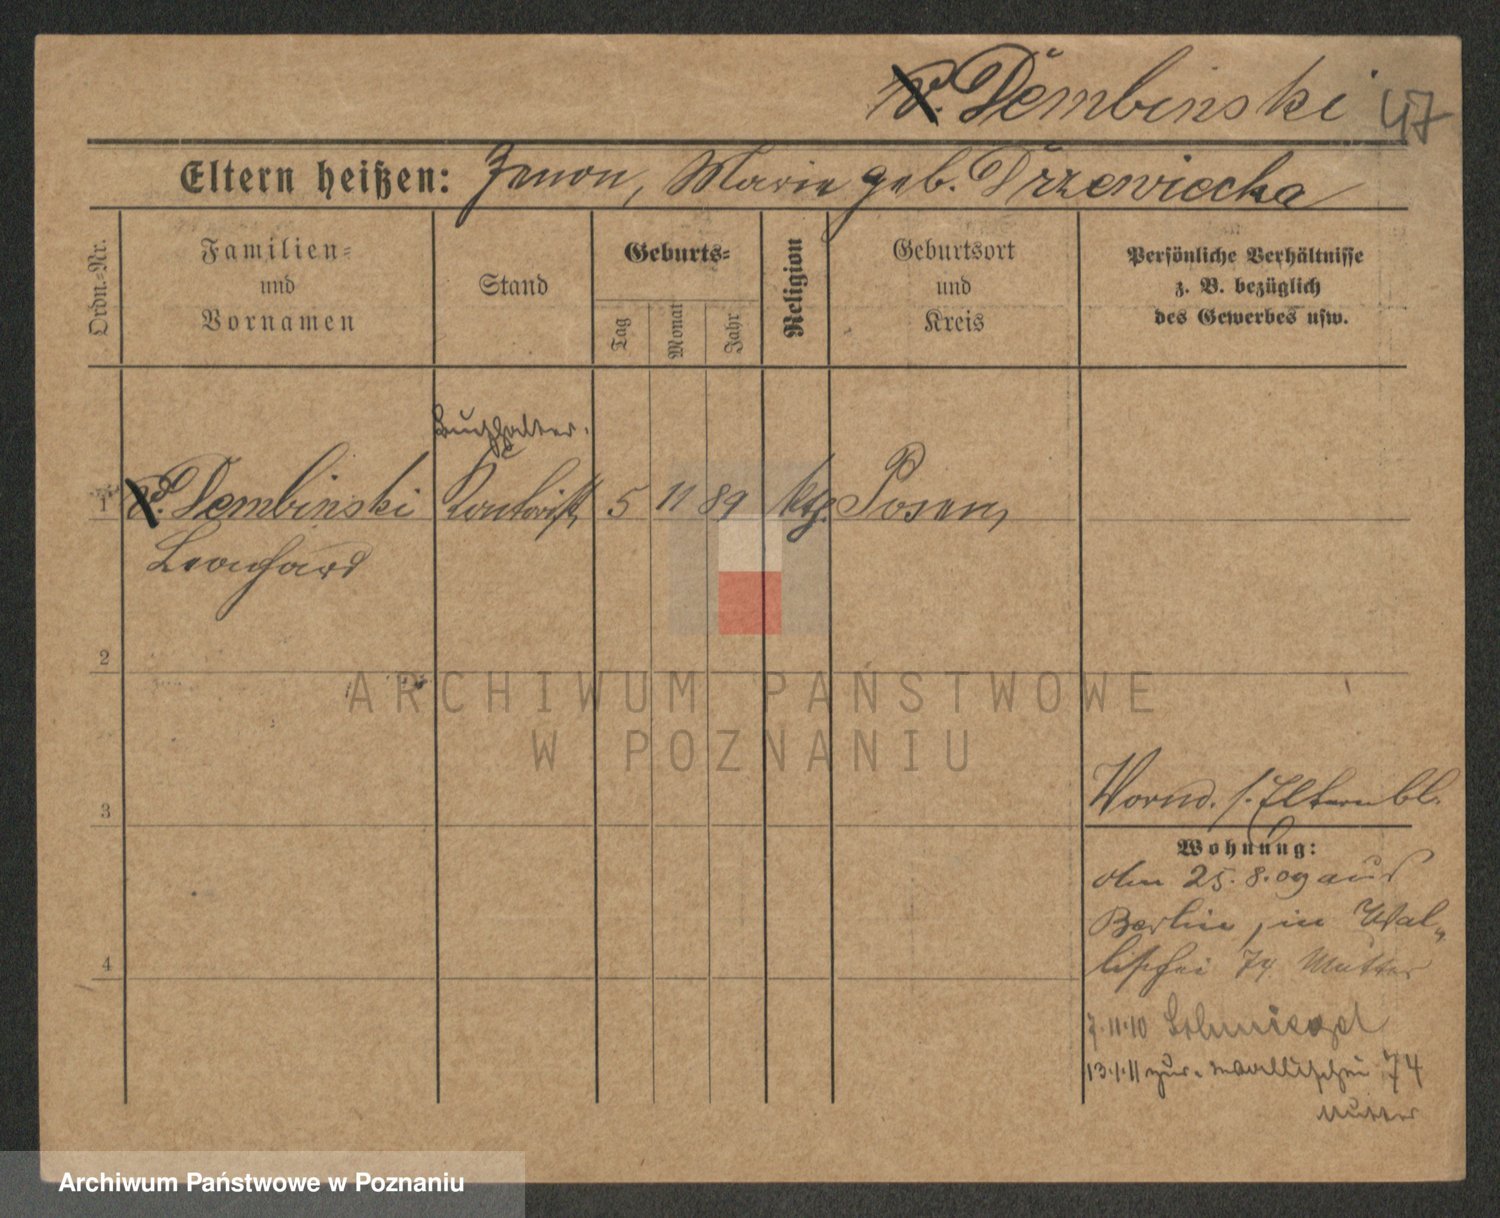 v. Dembinski 47
Eltern heißen: Zenon, Marie geb. Drzewiecka
Ordn.-Nr.
Familien-
und
Vornamen
Stand
Geburts-
Tag
Monat
Jahr
Religion
Geburtsort
und
Kreis
Persönliche Verhältnisse
z. B. bezüglich
des Gewerbes usw.
Buchhalter.
1 v. Dembinski Kontorist, 5 11 89 ktg. Posen,
Leonhard
2
ARCHIWUM PAŃSTWOWE
W POZNANIU
3
Vormd. s. Elternbl.
Wohnung:
25.8.09 aus
Berlin, in Wal-
lischei 74 Mutter
4
7.11.10
13.1.11 zur. Wallischei 74
Mutter
Archiwum Państwowe w Poznaniu